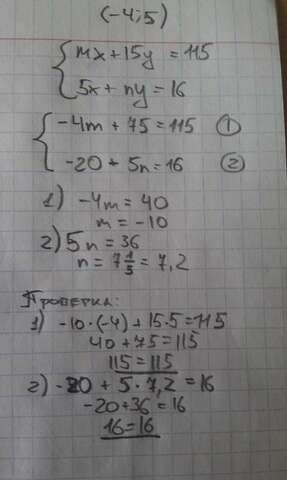 (-4;5)
{ mx+15y=115
{ 5x+ny=16
{ -4m+75=115 ①
{ -20+5n=16 ②
1) -4m=40
m=-10
2) 5n=36
n=7 1/5=7,2
Проверка:
1) -10·(-4)+15·5=115
40+75=115
115=115
2) -20+5·7,2=16
-20+36=16
16=16